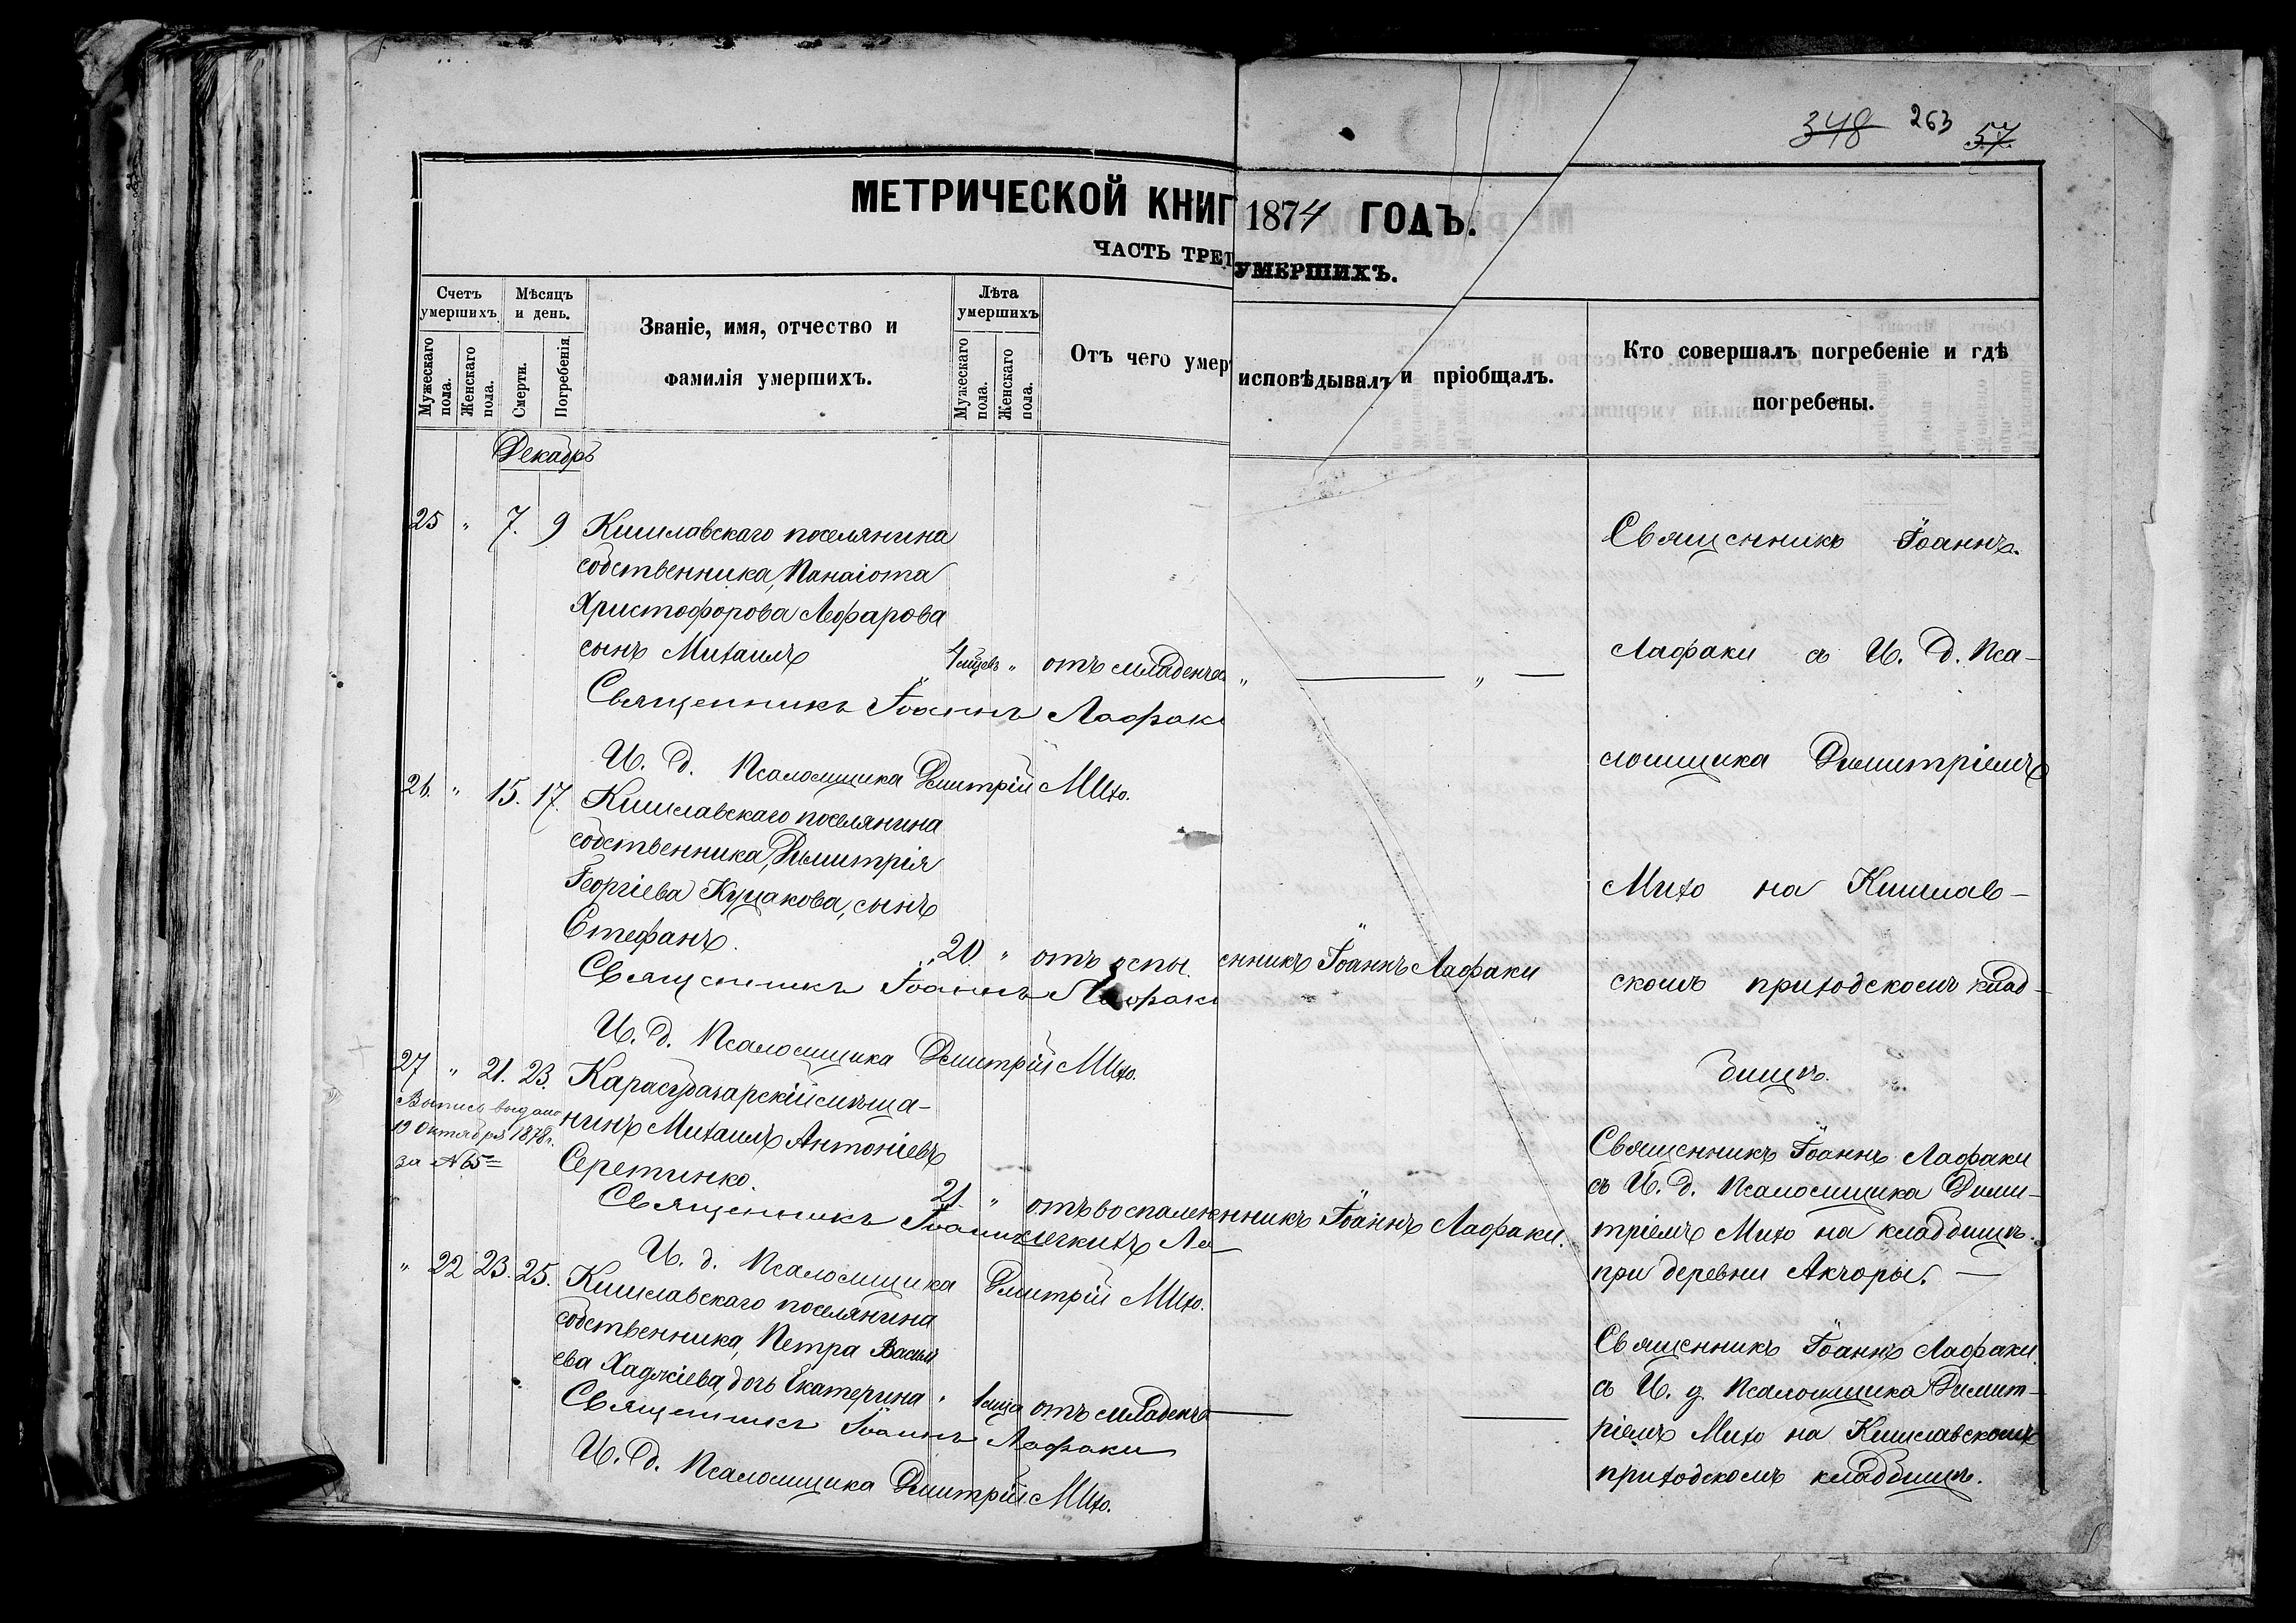 348 263 57
МЕТРИЧЕСКОЙ КНИГ 1874 ГОДЪ.
ЧАСТЬ ТРЕТ УМЕРШИХЪ.
Счетъ умершихъ
Мужескаго пола.
Женскаго пола.
Мѣсяцъ и день.
Смерти.
Погребенія.
Званіе, имя, отчество и
фамилія умершихъ.
Лѣта умершихъ
Мужескаго пола.
Женскаго пола.
Отъ чего умер
исповѣдывалъ и пріобщалъ.
Кто совершалъ погребеніе и гдѣ
погребены.
Декабрь
25 " 7. 9 Кишлавскаго поселянина
собственника, Панаіота
Христофорова Лефарова
сынъ Михаилъ 4 мѣцевъ " отъ младенчес " — " —
Священникъ Іоаннъ Лафаки
И. д. Псаломщика Дмитрій Михо.
26. " 15. 17. Кишлавскаго поселянина
собственника, Димитрія
Георгіева Куцакова, сынъ
Стефанъ. 20 " отъ оспы. енникъ Іоаннъ Лафаки
Священникъ Іоаннъ Лафаки
И. д. Псаломщика Дмитрій Михо.
Священникъ Іоаннъ
Лафаки съ И. д. Пса-
ломщика Димитріемъ
Михо на Кишлав-
скомъ приходскомъ клад-
бищѣ.
27 " 21. 23. Карасубазарскій мѣща-
нинъ Михаилъ Антоніевъ
Серетинко. 21. " отъ воспален нникъ Іоаннъ Лафаки.
легкихъ
Выпись выдана
19 Октября 1878 г.
за № 65
Священникъ Іоаннъ Ла
И. д. Псаломщика Дмитрій Михо.
Священникъ Іоаннъ Лафаки
съ И. д. Псаломщика Дими-
тріемъ Михо на кладбищѣ
при деревни Акчоры. —
" 22 23. 25. Кишлавскаго поселянина
собственника, Петра Василі
ева Хаджіева, дочь Екатерина " 1 мца отъ младенче — —
Священникъ Іоаннъ Лафаки
И. д. Псаломщика Дмитрій Михо.
Священникъ Іоаннъ Лафаки
съ И. д. Псаломщика Димит-
ріемъ Михо на Кишлавскомъ
приходскомъ кладбищѣ.